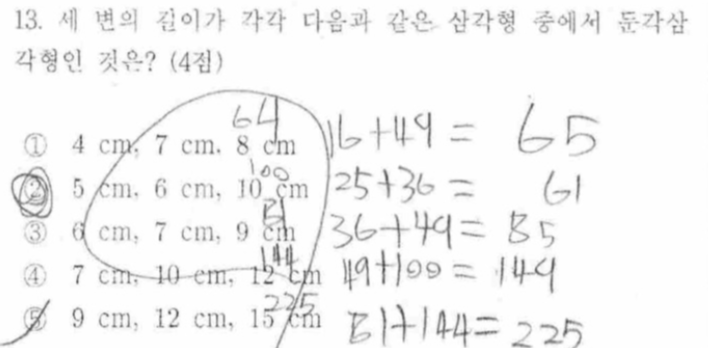 13. 세 변의 길이가 각각 다음과 같은 삼각형 중에서 둔각삼
각형인 것은? (4점)
64
① 4 cm, 7 cm, 8 cm 16+49= 65
100
② 5 cm, 6 cm, 10 cm 25+36= 61
81
③ 6 cm, 7 cm, 9 cm 36+49= 85
144
④ 7 cm, 10 cm, 12 cm 49+100= 149
225
⑤ 9 cm, 12 cm, 15 cm 81+144= 225